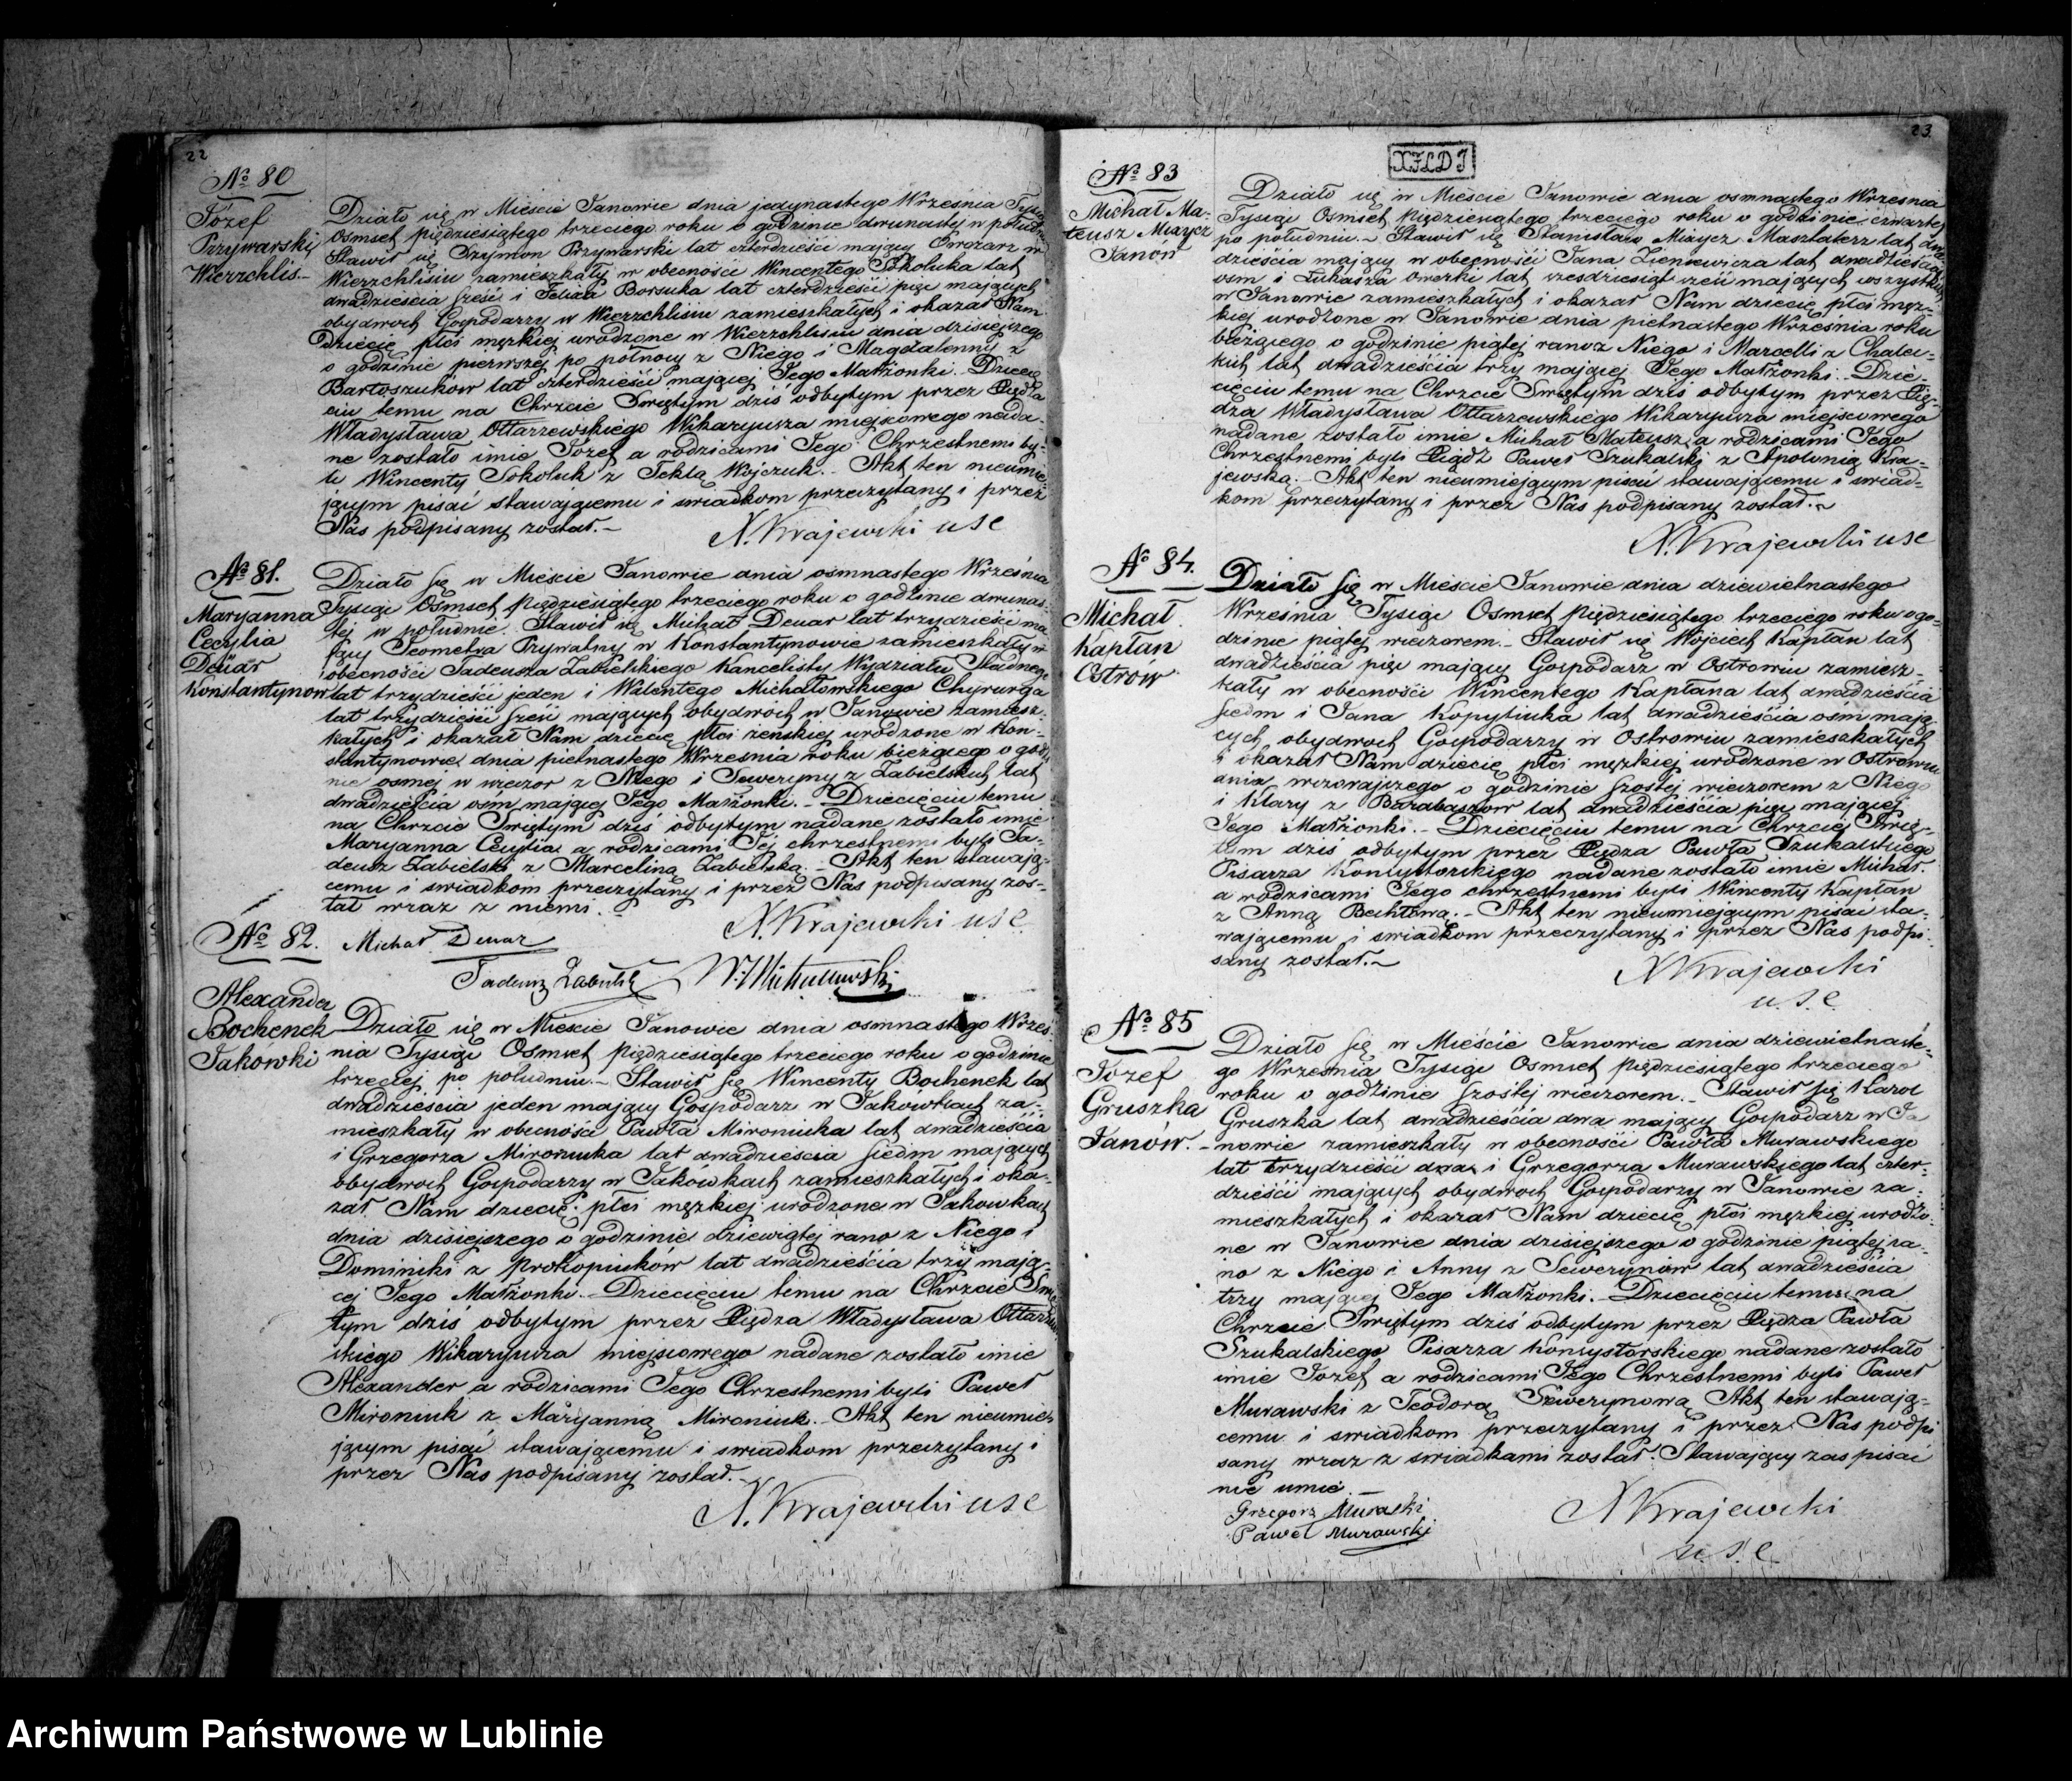 22
№ 80
Józef
Przywarski
Wierzchlis.-
Działo się w Mieście Janowie dnia jedynastego Września Tysiąc
Osmset pięćdziesiątego trzeciego roku o godzinie dwunastej w południe
Stawił się Szymon Przywarski lat czterdzieści mający Owczarz w
Wierzchlisiu zamieszkały w obecności Wincentego Sokoluka lat
dwadzieścia sześć i Felixa Borsuka lat czterdzieści pięć mających
obydwoch Gospodarzy w Wierzchlisiu zamieszkałych i okazał Nam
Dziecię płci męzkiej urodzone w Wierzchlisiu dnia dzisiejszego
o godzinie pierwszej po północy z Niego i Magdalenny z
Bartoszuków lat czterdzieści mającej Jego Małżonki.- Dziecię
ciu temu na Chrzcie Świętym dziś odbytym przez Xiędza
Władysława Ottarzewskiego Wikaryusza miejscowego nada-
ne zostało imie Józef a rodzicami Jego Chrzestnemi by-
li Wincenty Sokoluk z Teklą Wojczuk.- Akt ten nieumie-
jącym pisać stawającemu i swiadkom przeczytany i przez
Nas podpisany został.-
N. Krajewski usc
№ 81.
Maryanna
Cecylia
Dewar
Konstantynow
Działo się w Mieście Janowie dnia osmnastego Września
Tysiąc Osmset pięćdziesiątego trzeciego roku o godzinie dwunas-
tej w południe. Stawił się Michał Dewar lat trzydzieści ma
jący Jeometra Prywatny w Konstantynowie zamieszkały w
obecności Tadeusza Zabielskiego Kancelisty Wydziału Stadnego
lat trzydzieści jeden i Walentego Michałowskiego Chyrurga
lat trzydzieści sześć mających obydwóch w Janowie zamiesz-
kałych i okazał Nam dziecię płci żenskiej urodzone w Kon-
stantynowie dnia pietnastego Września roku bieżącego o godzi
nie osmej w wieczor z Niego i Seweryny z Zabielskich lat
dwadzieścia osm mającej Jego Małżonki.- Dziecięciu temu
na Chrzcie Świętym dziś odbytym nadane zostało imie
Maryanna Cecylia a rodzicami Jej chrzestnemi byli Ta-
deusz Zabielski z Marceliną Zabielską.- Akt ten stawają-
cemu i swiadkom przeczytany i przez Nas podpisany zos-
tał wraz z niemi.
N. Krajewski usc
Michał Dewar
Tadeusz Zabielski W. Michałowski
№ 82.
Alexander
Bochenek
Jakówki
Działo się w Mieście Janowie dnia osmnastego Wrześ-
nia Tysiąc Osmset pięćdziesiątego trzeciego roku o godzinie
trzeciej po południu.- Stawił się Wincenty Bochenek lat
dwadzieścia jeden mający Gospodarz w Jakówkach za-
mieszkały w obecności Pawła Mironiuka lat dwadzieścia
i Grzegorza Mironiuka lat dwadzieścia siedm mających
obydwoch Gospodarzy w Jakówkach zamieszkałych i oka-
zał Nam dziecię płci męzkiej urodzone w Jakowkach
dnia dzisiejszego o godzinie dziewiątej rano z Niego i
Dominiki z Prokopiuków lat dwadzieścia trzy mają-
cej Jego Małżonki.- Dziecięciu temu na Chrzcie Świę
tym dziś odbytym przez Xiędza Władysława Ottarzew
skiego Wikaryusza miejscowego nadane zostało imie
Alexander a rodzicami Jego Chrzestnemi byli Paweł
Mironiuk z Maryanną Mironiuk.- Akt ten nieumie
jącym pisać stawającemu i swiadkom przeczytany i
przez Nas podpisany został.-
N. Krajewski usc
23
XHDI
№ 83
Michał Ma-
teusz Miaycz
Janów
Działo się w Mieście Janowie dnia osmnastego Września
Tysiąc Osmset pięćdziesiątego trzeciego roku o godzinie czwartej
po południu.- Stawił się Stanisław Miaycz Masztalerz lat dwa
dzieścia mający w obecności Jana Zieniewicza lat dwadzieścia
osm i Łukasza Onerki lat szesdziesiąt sześć mających wszystkich
w Janowie zamieszkałych i okazał Nam dziecię płci męz-
kiej urodzone w Janowie dnia pietnastego Września roku
bieżącego o godzinie piątej rano z Niego i Marcelli z Chalec-
kich lat dwadzieścia trzy mającej Jego Małżonki.- Dzie-
cięciu temu na Chrzcie Świętym dziś odbytym przez Xię-
dza Władysława Ottarzewskiego Wikaryusza miejscowego
nadane zostało imie Michał Mateusz, a rodzicami Jego
Chrzestnemi byli Xiądz Paweł Szukalski z Apolonią Kra-
jewską.- Akt ten nieumiejącym pisać stawającemu i swiad-
kom przeczytany i przez Nas podpisany został.-
N. Krajewski usc
№ 84.
Michał
Kapłan
Ostrów
Działo się w Mieście Janowie dnia dziewietnastego
Września Tysiąc Osmset pięćdziesiątego trzeciego roku o go-
dzinie piątej wieczorem.- Stawił się Wojciech Kapłan lat
dwadzieścia pięć mający Gospodarz w Ostrowiu zamiesz-
kały w obecności Wincentego Kapłana lat dwadzieścia
siedm i Jana Kopytiuka lat dwadzieścia ośm mają
cych obydwoch Gospodarzy w Ostrowiu zamieszkałych
i okazał Nam dziecię płci męzkiej urodzone w Ostrowiu
dnia wczorajszego o godzinie szostej wieczorem z Niego
i Klary z Barabaszow lat dwadzieścia pięć mającej
Jego Małżonki.- Dziecięciu temu na Chrzcie Świę-
tym dziś odbytym przez Xiędza Pawła Szukalskiego
Pisarza Konsystorskiego nadane zostało imie Michał.
a rodzicami Jego chrzestnemi byli Wincenty Kapłan
z Anną Bechtową.- Akt ten nieumiejącym pisać sta-
wającemu i swiadkom przeczytany i przez Nas podpi-
sany został.-
N Krajewski
u.s.c
№ 85
Józef
Gruszka
Janów.-
Działo się w Mieście Janowie dnia dziewietnaste-
go Września Tysiąc Osmset pięćdziesiątego trzeciego
roku o godzinie szostej wieczorem.- Stawił się Karol
Gruszka lat dwadzieścia dwa mający Gospodarz w Ja
nowie zamieszkały w obecności Pawła Murawskiego
lat trzydzieści dwa i Grzegorza Murawskiego lat czter-
dzieści mających obydwoch Gospodarzy w Janowie za-
mieszkałych i okazał Nam dziecię płci męzkiej urodzo-
ne w Janowie dnia dzisiejszego o godzinie piątej ra-
no z Niego i Anny z Sewerynów lat dwadzieścia
trzy mającej Jego Małżonki.- Dziecięciu temu na
Chrzcie Świętym dziś odbytym przez Xiędza Pawła
Szukalskiego Pisarza Konsystorskiego nadane zostało
imie Józef a rodzicami Jego Chrzestnemi byli Paweł
Murawski z Teodorą Sewerynową Akt ten stawają-
cemu i swiadkom przeczytany i przez Nas podpi
sany wraz z swiadkami został. Stawający zas pisać
nie umie.-
Grzegorz Murawski
Paweł Murawski
N Krajewski
u.s.c
Archiwum Państwowe w Lublinie